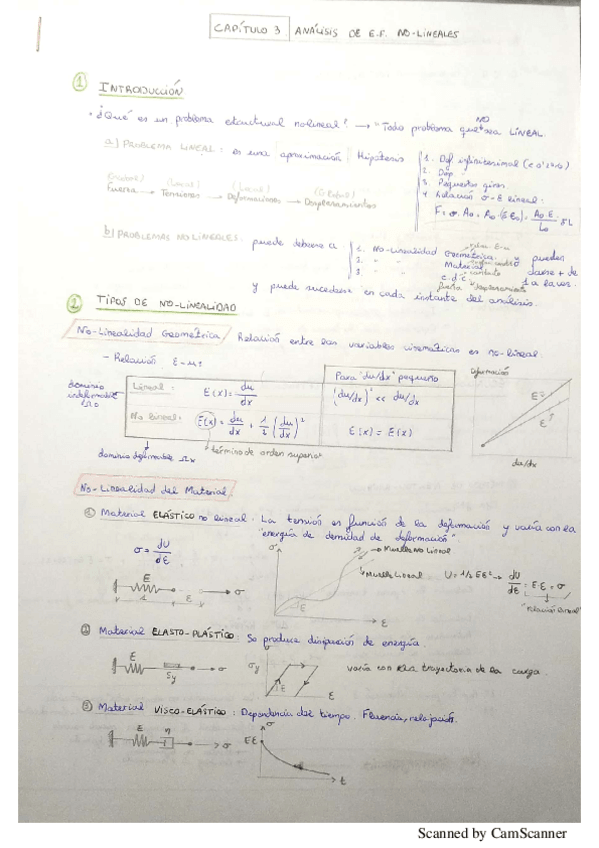 CAPÍTULO 3 ANÁLISIS DE E.F. NO-LINEALES
1 INTRODUCCIÓN
• ¿Qué es un problema estructural no lineal? → "Todo problema que NO sea LINEAL.
a) PROBLEMA LINEAL: es una aproximación Hipótesis
1. Def infinitesimal
2. Dep.
3. Pequeños giros.
4. Relación σ-ε lineal:
(Global) (Local) (Local) (Global)
Fuerza → Tensiones → Deformaciones → Desplazamientos
F = σ·A₀ = A₀·(E ε₀) = A₀ E / L₀ δL
b) PROBLEMAS NO LINEALES: puede deberse a:
1. No-linealidad Geométrica
2. " " Material
3. " " c.d.c.
contacto
pueden darse + de 1 a la vez.
y puede sucederse en cada instante del análisis.
2 TIPOS DE NO-LINEALIDAD
No-Linealidad Geométrica / Relación entre las variables cinemáticas es no-lineal.
- Relación ε-u:
Para "du/dx" pequeño
Deformación
dominio indeformable Ω₀
Lineal: E(x) = du/dx
(du/dx)² << du/dx
No lineal: E(x) = du/dx + 1/2 (du/dx)²
E(x) = E(x)
dominio deformable Ωx
término de orden superior
du/dx
No-Linealidad del Material
1 Material ELÁSTICO no lineal: La tensión es función de la deformación y varía con la
"energía de densidad de deformación".
σ = dU/dε
σ
Muelle No Lineal
Muelle Lineal
U = 1/2 E ε² → dU/dε = E·ε = σ
"relación lineal"
E
ε
2 Material ELASTO-PLÁSTICO: Se produce disipación de energía.
E
σ
Sy
σy
E
ε
varía con la trayectoria de la carga.
3 Material VISCO-ELÁSTICO: Dependencia del tiempo. Fluencia, relajación.
E
η
σ
Eε
σ
t
Scanned by CamScanner